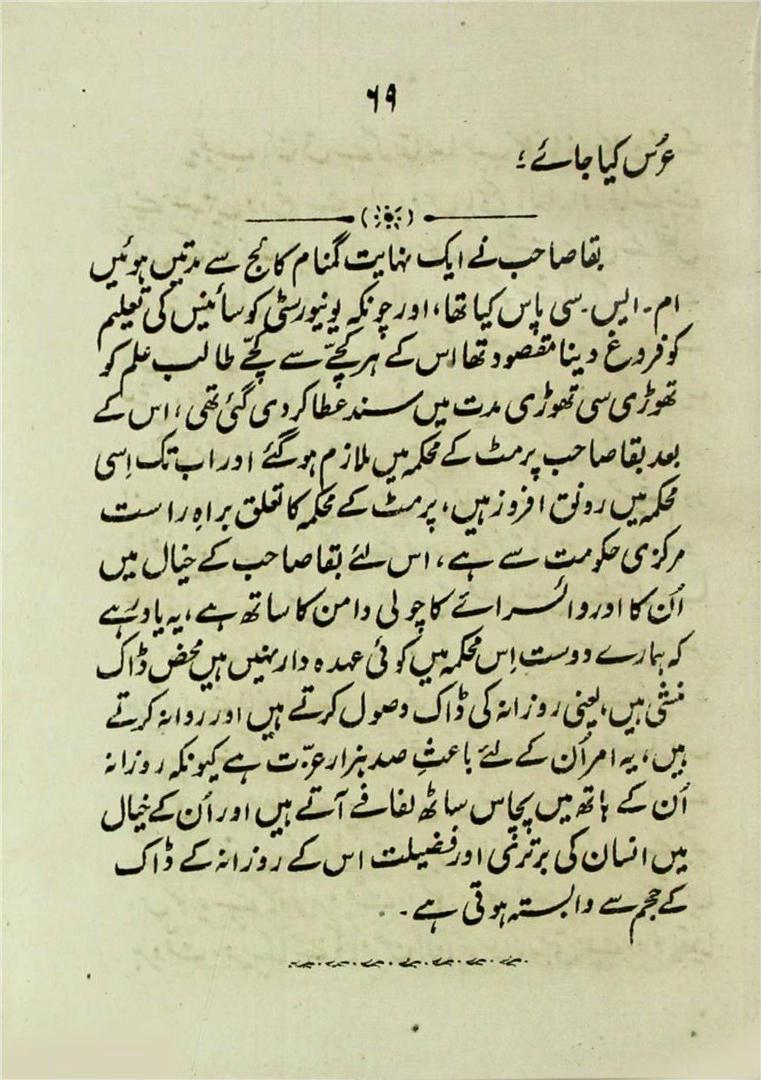 ۶۹
عرُس کیا جائے؛
بقا صاحب نے ایک نہایت گمنام کالج سے مدتیں ہوئیں
ام۔ ایس۔ سی پاس کیا تھا، اور چونکہ یونیورسٹی کو سائنیس کی تعلیم
کو فروغ دینا مقصود تھا اس کے ہر کچّے سے کچّے طالب علم کو
تھوڑی سی تھوڑی مدت میں سند عطا کر دی گئی تھی، اس کے
بعد بقا صاحب پرمٹ کے محکمہ میں ملازم ہو گئے اور اب تک اِسی
محکمہ میں رونق افروز ہیں، پرمٹ کے محکمہ کا تعلق براہِ راست
مرکزی حکومت سے ہے، اس لئے بقا صاحب کے خیال میں
اُن کا اور وائسرائے کا چولی دامن کا ساتھ ہے، یہ یاد رہے
کہ ہمارے دوست اِس محکمہ میں کوئی عہدہ دار نہیں ہیں محض ڈاک
منشی ہیں، یعنی روزانہ کی ڈاک وصول کرتے ہیں اور روانہ کرتے
ہیں، یہ امر اُن کے لئے باعثِ صد ہزار عزّت ہے کیونکہ روزانہ
اُن کے ہاتھ میں پچاس ساٹھ لفافے آتے ہیں اور اُن کے خیال
میں انسان کی برتری اور فضیلت اس کے روزانہ کے ڈاک
کے حجم سے وابستہ ہوتی ہے۔